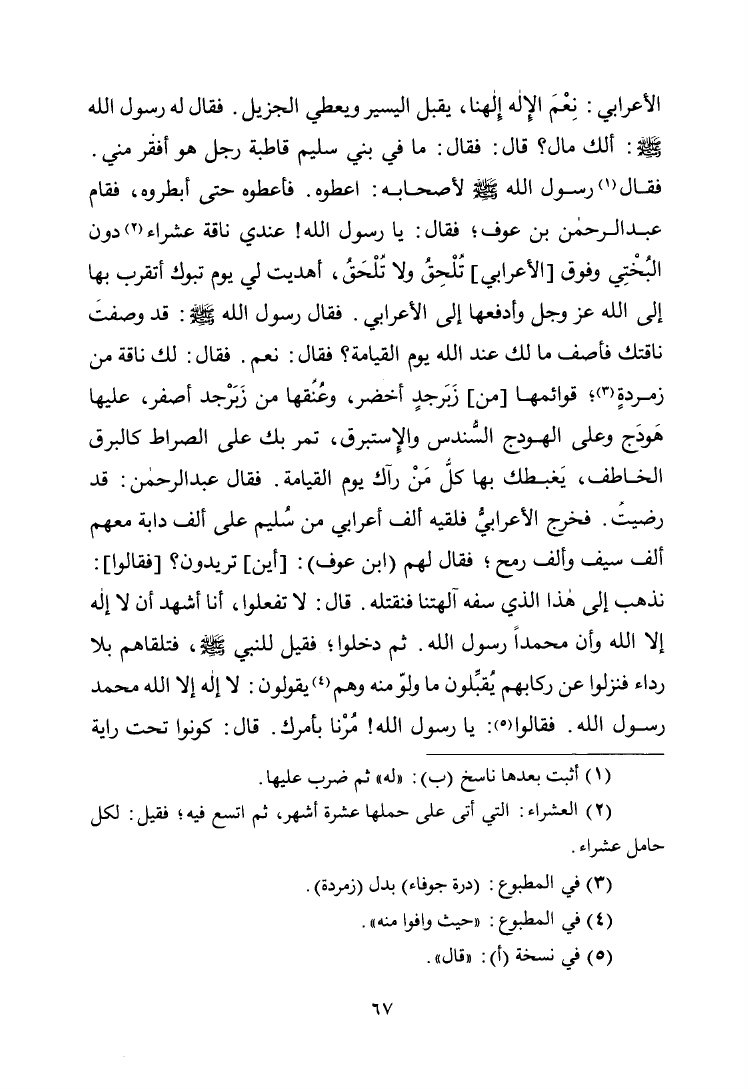 الأعرابي: نِعْمَ الإِلٰه إِلٰهنا، يقبل اليسير ويعطي الجزيل. فقال له رسول الله
ﷺ: ألك مال؟ قال: فقال: ما في بني سليم قاطبة رجل هو أفقر مني.
فقـال(١) رسـول الله ﷺ لأصحـابـه: اعطوه. فأعطوه حتى أبطروه، فقام
عبـدالـرحمٰن بن عوف؛ فقال: يا رسول الله! عندي ناقة عشراء(٢) دون
البُخْتِي وفوق [الأعرابي] تُلْحِقُ ولا تُلْحَقُ، أهديت لي يوم تبوك أتقرب بها
إلى الله عز وجل وأدفعها إلى الأعرابي. فقال رسول الله ﷺ: قد وصفتَ
ناقتك فأصف ما لك عند الله يوم القيامة؟ فقال: نعم. فقال: لك ناقة من
زمـردةٍ(٣)؛ قوائمهـا [من] زَبَرجدٍ أخضر، وعُنُقها من زَبَرْجد أصفر، عليها
هَودَج وعلى الهـودج السُّندس والإِستبرق، تمر بك على الصراط كالبرق
الخـاطف، يَغبـطك بها كلُّ مَنْ رآك يوم القيامة. فقال عبدالرحمٰن: قد
رضيتُ. فخرج الأعرابيُّ فلقيه ألف أعرابي من سُليم على ألف دابة معهم
ألف سيف وألف رمح؛ فقال لهم (ابن عوف): [أين] تريدون؟ [فقالوا]:
نذهب إلى هٰذا الذي سفه آلهتنا فنقتله. قال: لا تفعلوا، أنا أشهد أن لا إلٰه
إلا الله وأن محمداً رسول الله. ثم دخلوا؛ فقيل للنبي ﷺ، فتلقاهم بلا
رداء فنزلوا عن ركابهم يُقبِّلون ما ولوّ منه وهم(٤) يقولون: لا إلٰه إلا الله محمد
رسـول الله. فقالوا(٥): يا رسول الله! مُرْنا بأمرك. قال: كونوا تحت راية
(١) أثبت بعدها ناسخ (ب): «له» ثم ضرب عليها.
(٢) العشراء: التي أتى على حملها عشرة أشهر، ثم اتسع فيه؛ فقيل: لكل
حامل عشراء.
(٣) في المطبوع: (درة جوفاء) بدل (زمردة).
(٤) في المطبوع: «حيث وافوا منه».
(٥) في نسخة (أ): «قال».
٦٧